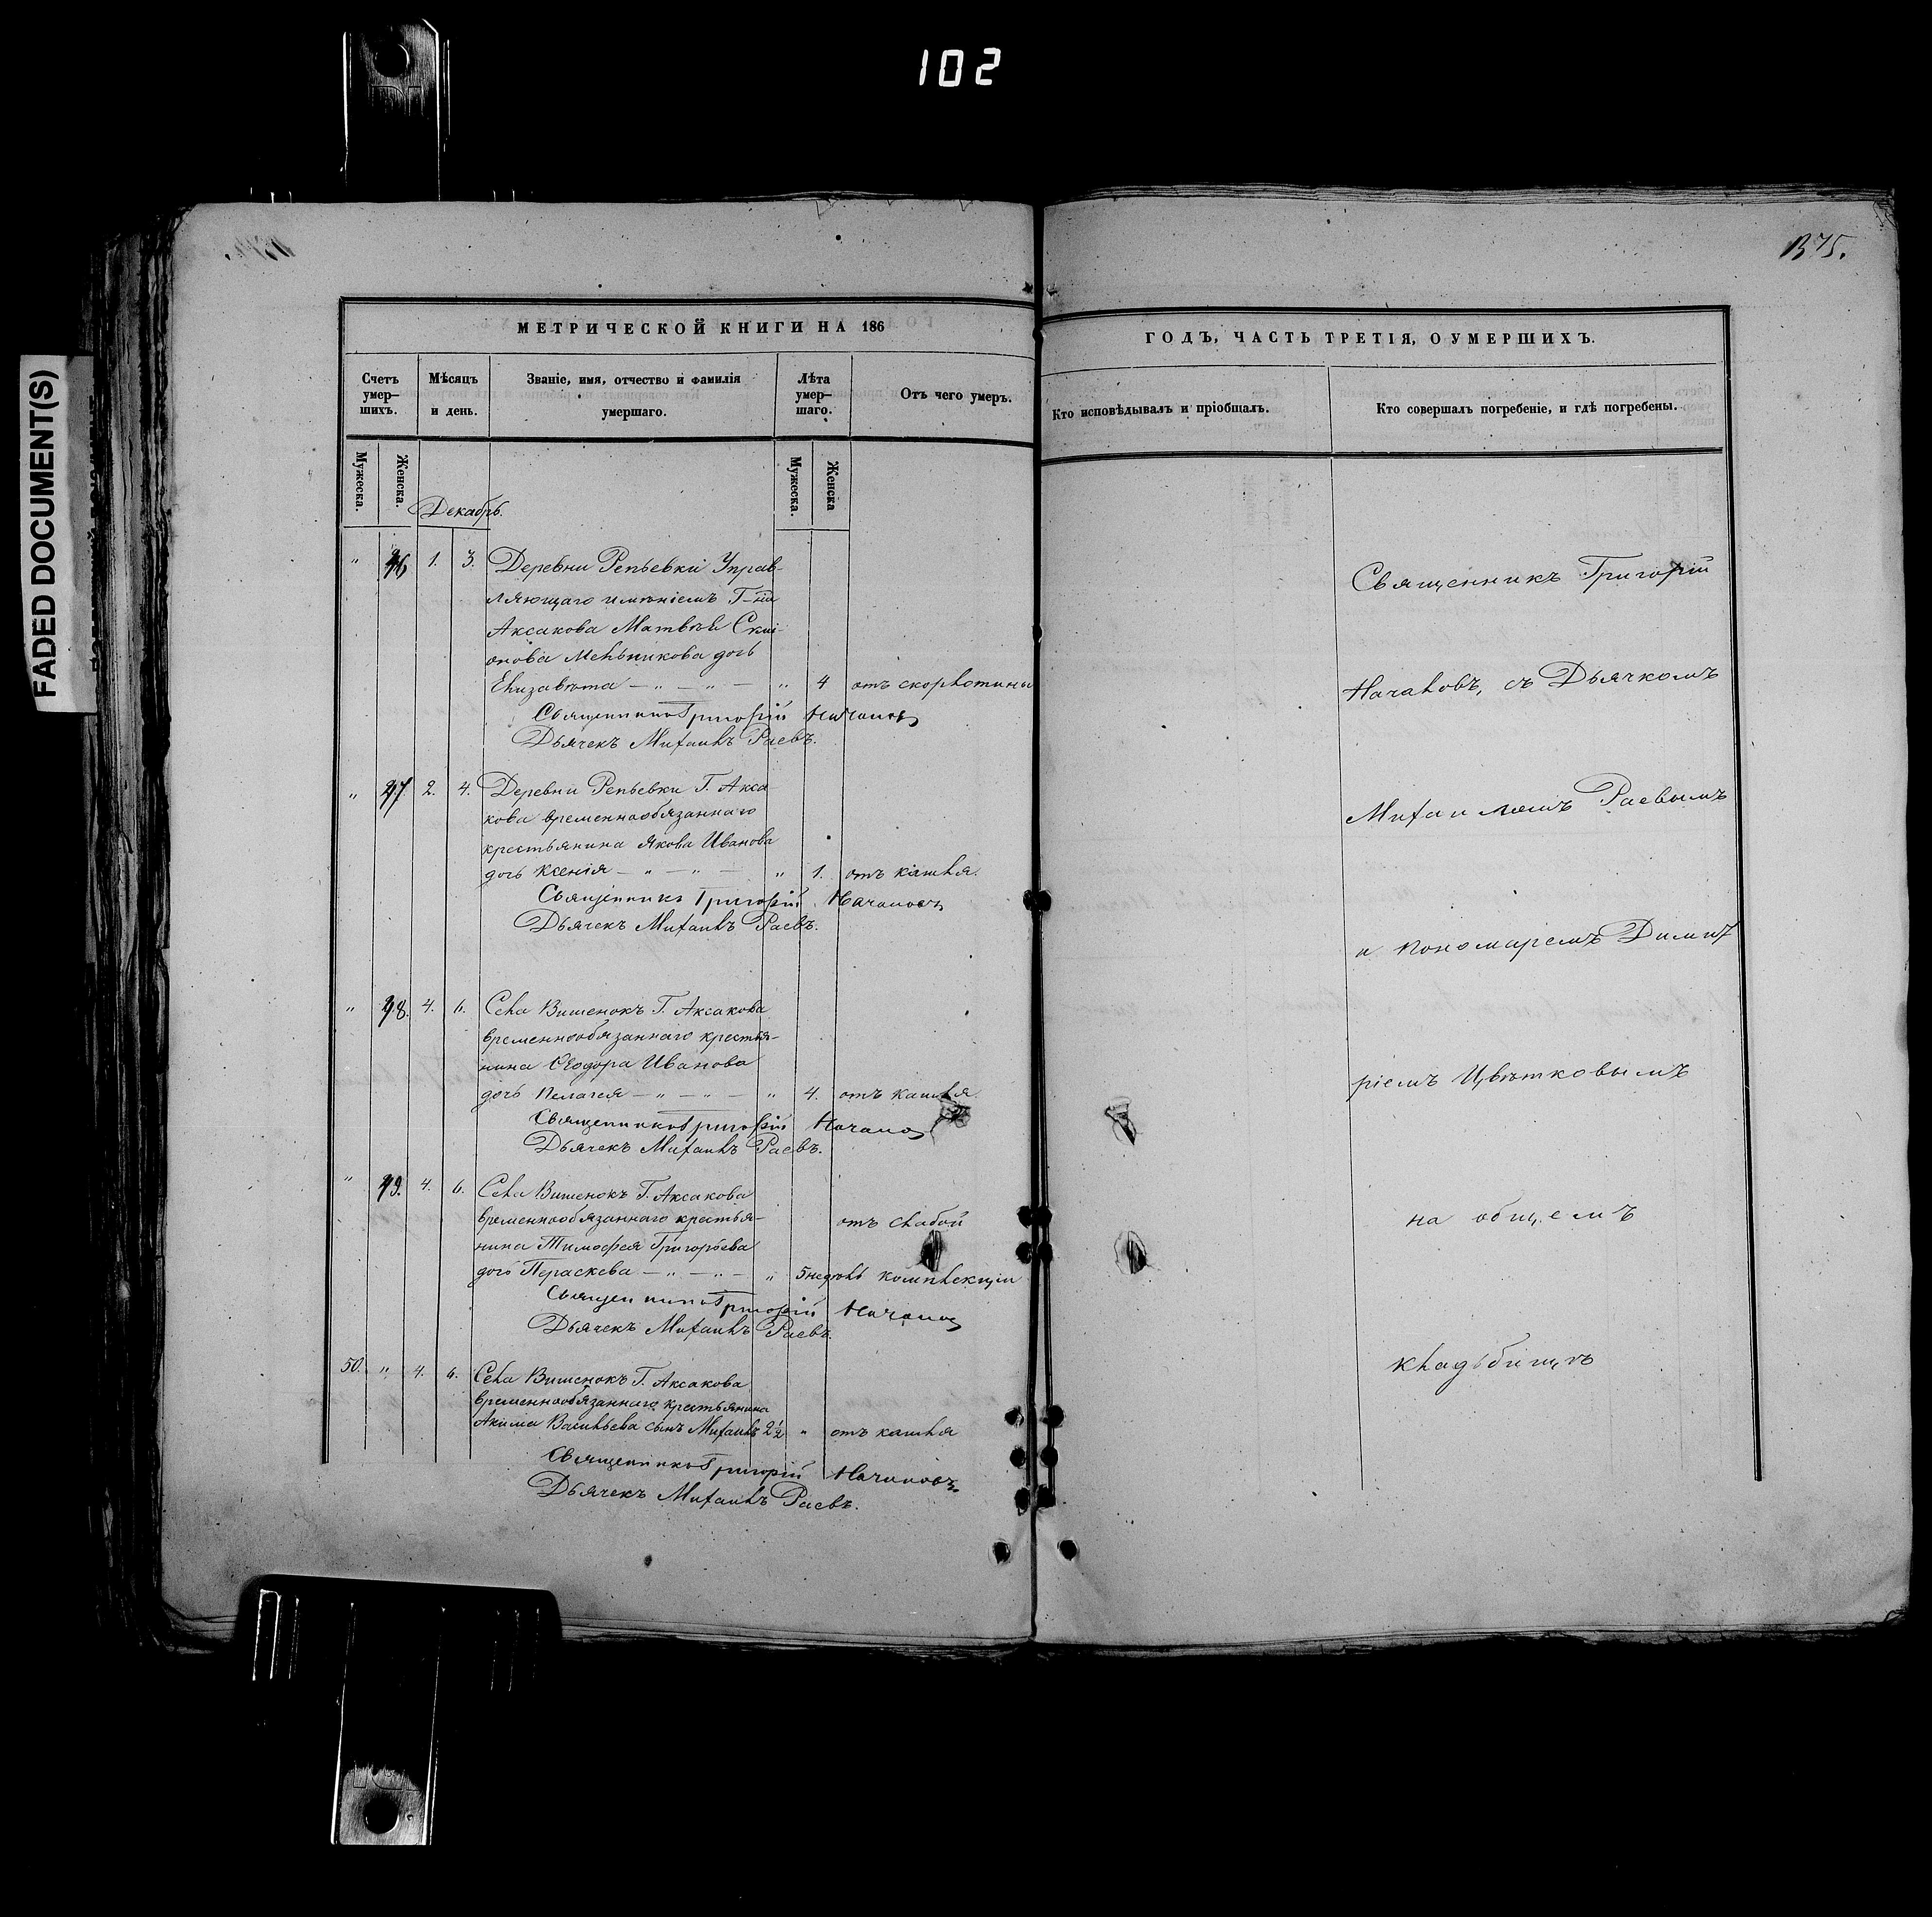 102
FADED DOCUMENT(S)
1375.
МЕТРИЧЕСКОЙ КНИГИ НА 186
ГОДЪ, ЧАСТЬ ТРЕТІЯ, О УМЕРШИХЪ.
Счетъ умер–шихъ.
Мѣсяцъ и день.
Званіе, имя, отчество и фамилія умершаго.
Лѣта умер–шаго.
Отъ чего умеръ.
Кто исповѣдывалъ и пріобщалъ.
Кто совершалъ погребеніе, и гдѣ погребены.
Мужеска.
Женска.
Мужеска.
Женска
Декабрь.
" 46 1. 3. Деревни Репьевки Управ-
ляющаго имѣніемъ
Аксакова Матвѣя
Мельникова дочь
Елизавета — " — " — " 4 отъ скорлотины
Священникъ Григорій Началовъ
Дьячекъ Михаилъ Раевъ.
" 47 2. 4. Деревни Репьевки Г. Акса
кова временнообязаннаго
крестьянина Якова Иванова
дочь Ксенія — " — " — " 1. отъ кашля.
Священникъ Григорій Началовъ
Дьячекъ Михаилъ Раевъ.
" 48. 4. 6. Села Вишенокъ Г. Аксакова
временнообязаннаго крестья–
нина Ѳеодора Иванова
дочь Пелагея — " — " — " 4. отъ кашля.
Священникъ Григорій Началовъ
Дьячекъ Михаилъ Раевъ.
" 49. 4. 6. Села Вишенокъ Г. Аксакова
временнообязаннаго крестья–
отъ слабой
нина Тимофея Григорьева
дочь Параскева — " — " — " 5 недѣль комплекціи
Священникъ Григорій Началовъ
Дьячекъ Михаилъ Раевъ.
50. " 4. 6. Села Вишенокъ Г. Аксакова
временнообязаннаго крестьянина
Акима Васильева сынъ Михаилъ 2½ " отъ кашля
Священникъ Григорій Началовъ.
Дьячекъ Михаилъ Раевъ.
Священникъ Григорій
Началовъ, съ Дьячкомъ
Михаиломъ Раевымъ
и пономаремъ Димит
ріемъ Цвѣтковымъ
на общемъ
кладбищѣ